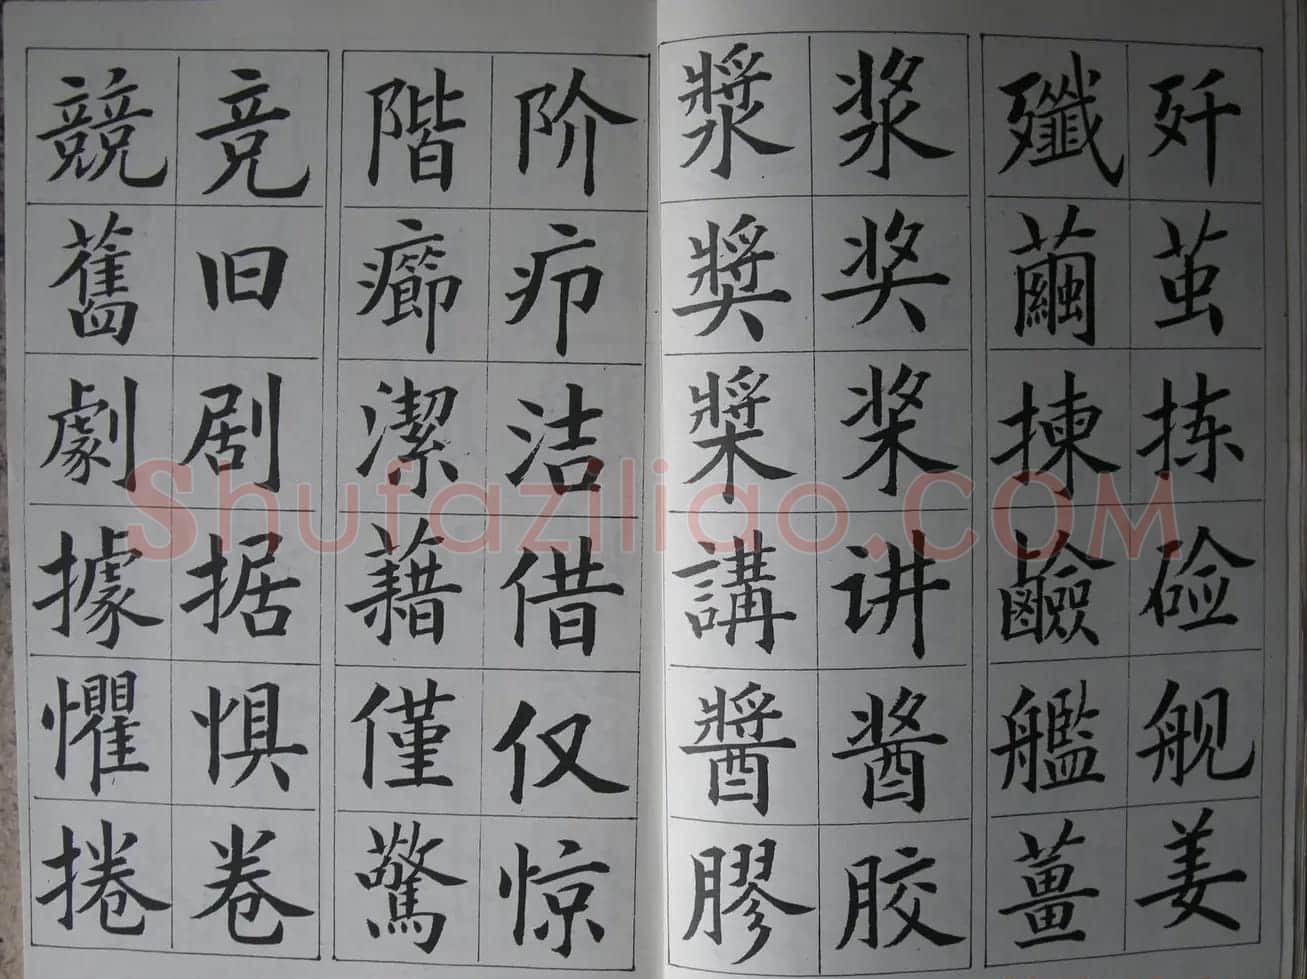 歼茧拣硷舰姜
殲繭揀鹼艦薑
浆奖桨讲酱胶
漿奬槳講醬膠
阶疖洁借仅惊
階癤潔藉僅驚
竞旧剧据惧卷
競舊劇據懼捲
Shufaziliao.COM